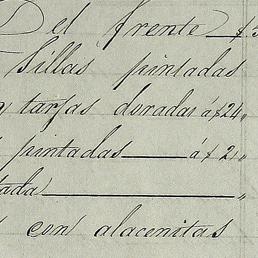 Del frente $
Sillas pintadas
tarjas doradas á $24„
pintadas á $2„
con alacenitas